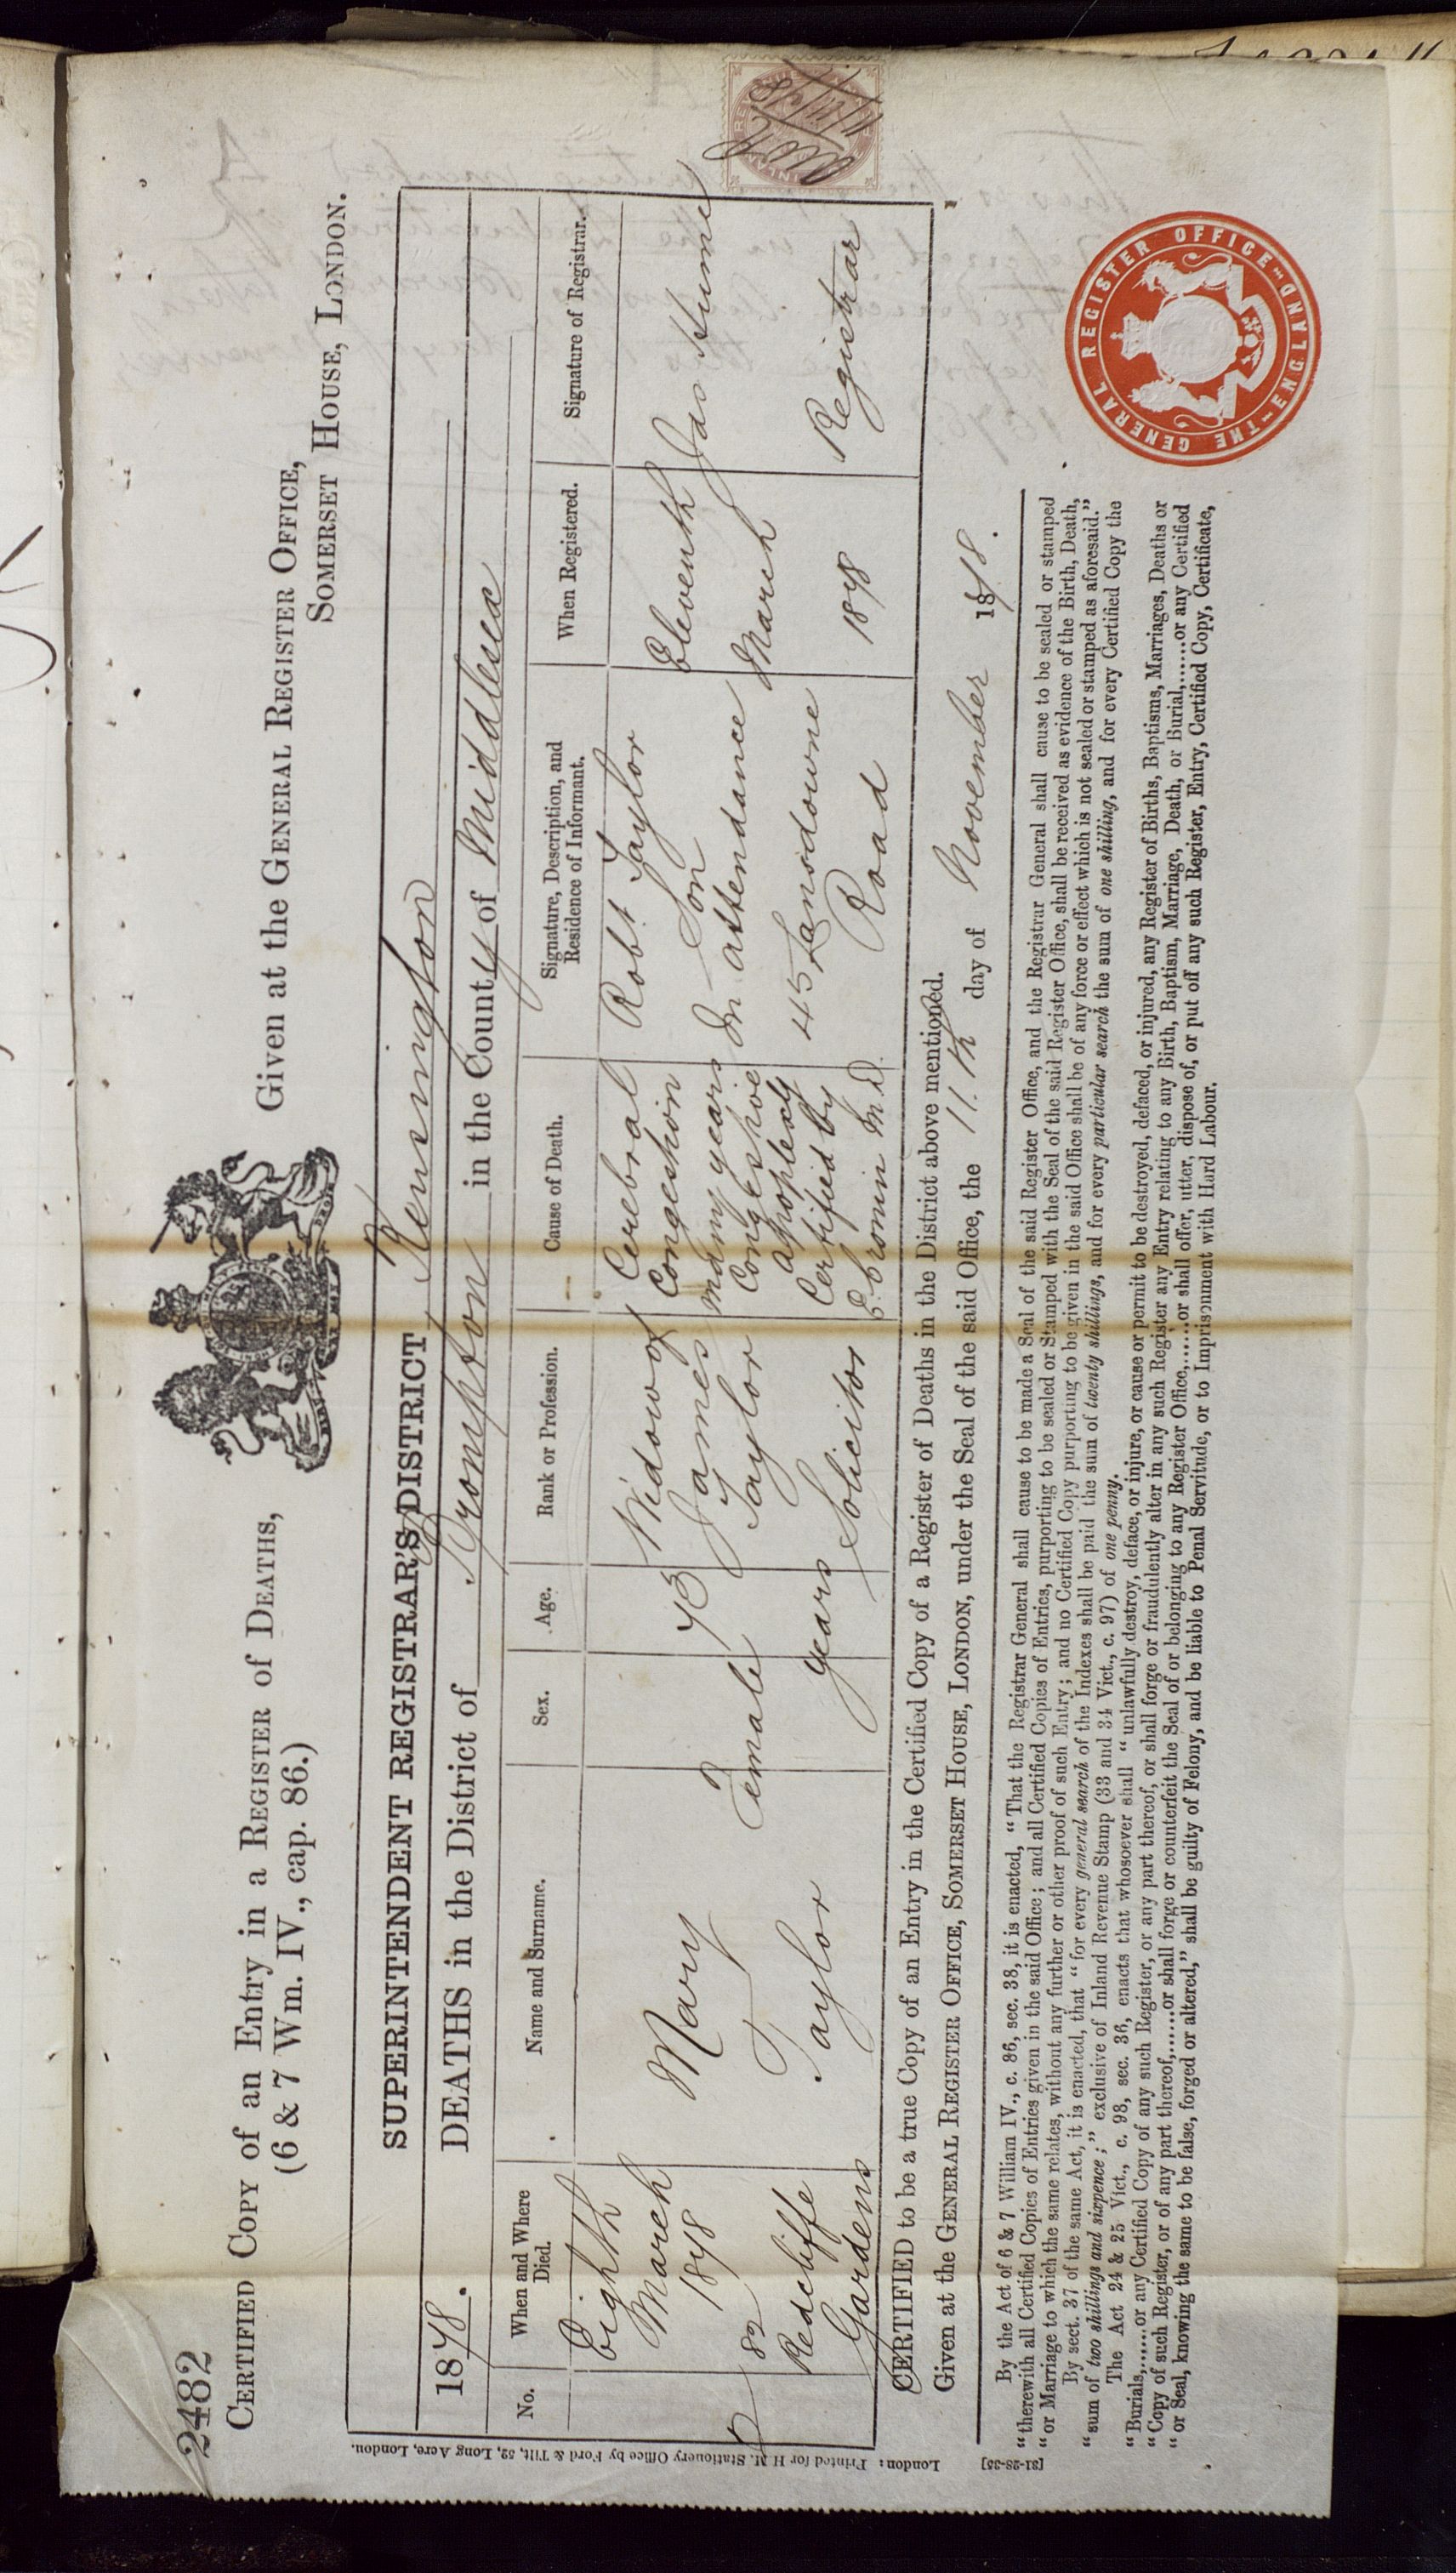 2482
CERTIFIED COPY of an Entry in a REGISTER of DEATHS,
(6 & 7 Wm. IV., cap. 86.)
Given at the GENERAL REGISTER OFFICE,
SOMERSET HOUSE, LONDON.
SUPERINTENDENT REGISTRAR'S DISTRICT Kensington
1878. DEATHS in the District of Brompton in the County of Middlesex
No.
When and Where
Died.
Name and Surname.
Sex.
Age.
Rank or Profession.
Cause of Death.
Signature, Description, and
Residence of Informant.
When Registered.
Signature of Registrar.
Eighth
March
1878
82
Redcliffe
Gardens
Mary
Taylor
Female
73
years
Widow of
James
Taylor
Solicitor
Cerebral
Congestion
many years
Congestive
Apoplexy
Certified by
E. Cronin M.D.
Robt. Taylor
Son
In attendance
45 Lansdowne
Road
Eleventh
March
1878
Jas Hume
Registrar
CERTIFIED to be a true Copy of an Entry in the Certified Copy of a Register of Deaths in the District above mentioned.
Given at the GENERAL REGISTER OFFICE, SOMERSET HOUSE, LONDON, under the Seal of the said Office, the 11th day of November 1878.
By the Act of 6 & 7 William IV., c. 86, sec. 38, it is enacted, "That the Registrar General shall cause to be made a Seal of the said Register Office, and the Registrar General shall cause to be sealed or stamped
"therewith all Certified Copies of Entries given in the said Office; and all Certified Copies of Entries, purporting to be sealed or Stamped with the Seal of the said Register Office, shall be received as evidence of the Birth, Death,
"or Marriage to which the same relates, without any further or other proof of such Entry; and no Certified Copy purporting to be given in the said Office shall be of any force or effect which is not sealed or stamped as aforesaid."
By sect. 37 of the same Act, it is enacted, that "for every general search of the Indexes shall be paid the sum of twenty shillings, and for every particular search the sum of one shilling, and for every Certified Copy the
"sum of two shillings and sixpence;" exclusive of Inland Revenue Stamp (33 and 34 Vict., c. 97) of one penny.
The Act 24 & 25 Vict., c. 98, sec. 36, enacts that whosoever shall "unlawfully destroy, deface, or injure, or cause or permit to be destroyed, defaced, or injured, any Register of Births, Baptisms, Marriages, Deaths or
"Burials,......or any Certified Copy of any such Register, or any part thereof, or shall forge or fraudulently alter in any such Register any Entry relating to any Birth, Baptism, Marriage, Death, or Burial,......or any Certified
"Copy of such Register, or of any part thereof,......or shall forge or counterfeit the Seal of or belonging to any Register Office,......or shall offer, utter, dispose of, or put off any such Register, Entry, Certified Copy, Certificate,
"or Seal, knowing the same to be false, forged or altered," shall be guilty of Felony, and be liable to Penal Servitude, or to Imprisonment with Hard Labour.
THE GENERAL REGISTER OFFICE ENGLAND
London: Printed for H M. Stationery Office by Ford & Tilt, 52, Long Acre, London.
[31-28-35]